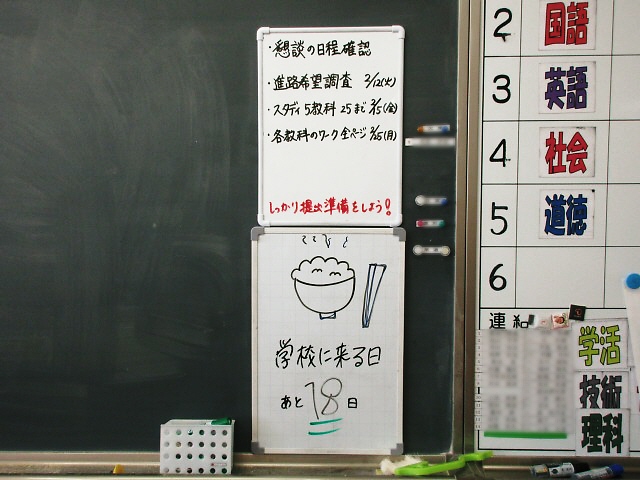 ・懇談の日程確認
・進路希望調査 2/12(火)
・スタディ5教科 25まで 2/15(金)
・各教科のワーク全ページ 2/25(月)
しっかり提出準備をしよう!
学校に来る日
あと18日
2 国語
3 英語
4 社会
5 道徳
6
学活
技術
理科